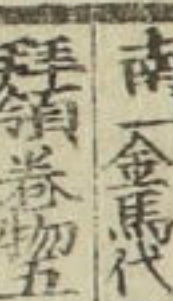 南一金馬代
拜領巻物五